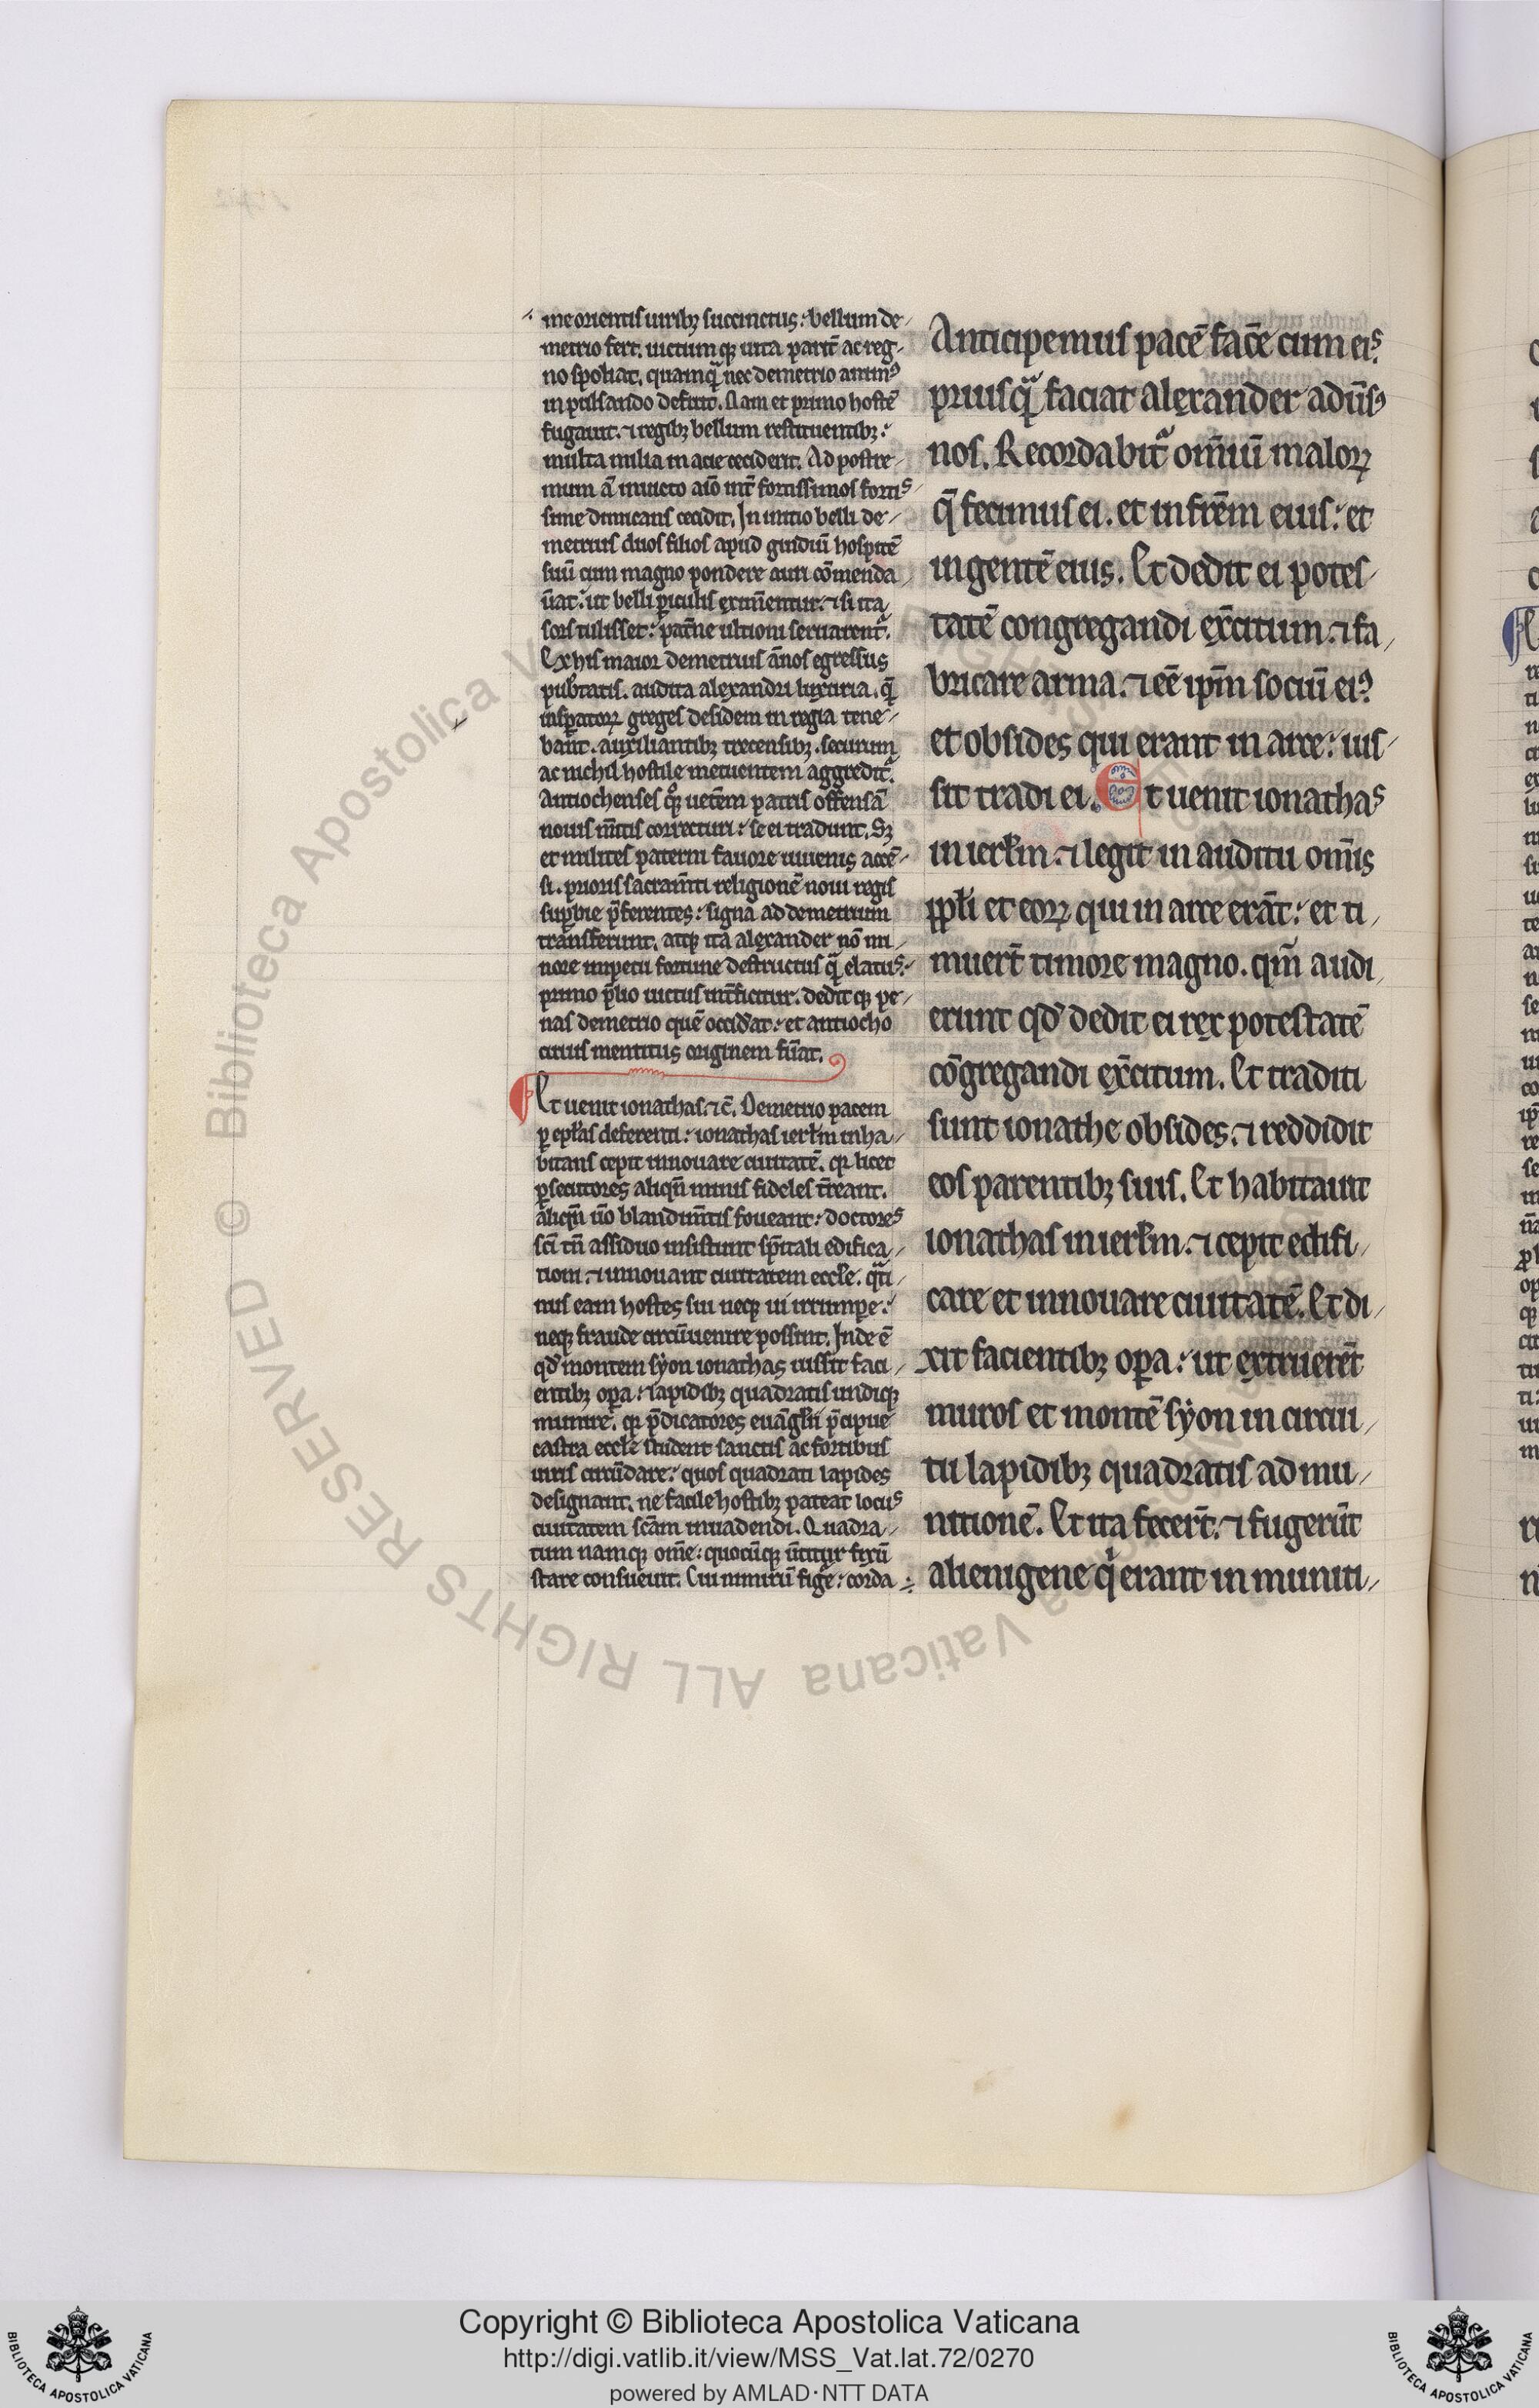 me orientis uirib; succinctus: bellum de
metrio fert. uictumq; uita parit̃ ac reg
no spoliat. quamq̃ nec demetrio animꝰ
in pulsando defuit. Nam et primo hostẽ
fugauit. ⁊ regib; bellum restituentib;:
multa milia in acie ceciderit. Ad postre
mum tñ inuicto aĩo int̃ fortissimos fortis
sime dimicans cecidit. In initio belli de
metrius duos filios apud gnidiũ hospitẽ
suũ cum magno pondere auri cõmenda
ũat: ut belli piculis eximẽentur. ⁊ si ita
sors tulisset: pat̃ne ultioni seruarent̃.
Ex his maior demetrius ãnos egressus
pub̃tatis. audita alexandri luxuria. q̃
insperatoꝝ greges desidem in regia tene
bañt. auxiliantib; cretensib;. securum
ac nichil hostile metuentem aggredit̃.
Antiochenses q̊q; uet̃em patris offensã
nouis m̃itis correcturi: se ei tradunt. S;
et milites paterni fauore iuuenis accẽ
si. prioris sacram̃ti religionẽ noui regis
supbie p̃ferentes: signa ad demetrium
transferunt. atq; ita alexander nõ mi
nore impetu fortune destructus q̃ elatus:
primo p̃lio uictus int̃ficitur. deditq; pe
nas demetrio quẽ occid̃at: et antiocho
cuius mentitus originem fũat.
Et uenit ionathas. ⁊ c̃. Demetrio pacem
p ep̃las deferenti: ionathas ierłm inha
bitans cepit innouare ciuitatẽ. qꝛ licet
psecutores aliqñ minis fideles t̃reant.
aliqñ ũo blandim̃tis foueant: doctores
sc̃i tñ assiduo insistunt sp̃itali edifica
tioni. ⁊ innouant ciuitatem eccłe. q̃ti
nus eam hostes sui neq; ui irrumpe:
neq; fraude circũuenire possint. Inde ẽ
qd̃ montem syon ionathas iussit faci
entib; opa: lapidib; quadratis undiq;
munire. qꝛ p̃dicatores euãgłii p̃cipue
castra eccłe student sanctis ac fortibus
uiris circũdare: quos quadrati lapides
designant. ne facile hostib; pateat locus
ciuitatem sc̃am inuadendi. Quadra
tum namq; om̃e: quocũq; ũtitur fixũ
stare consueuit. Cui nimirũ figẽ: corda
Anticipemus pacẽ fac̃e cum eis
priusq̃ faciat alexander adũsꝰ
nos. Recordabit̃ om̃iũ maloꝝ
q̃ fecimus ei. et in fr̃em eius: et
in gentẽ eius. Et dedit ei potes
tatẽ congregandi ex̃citum. ⁊ fa
bricare arma. ⁊ eẽ ip̃m sociũ eiꝰ
et obsides qui erant in arce: ius
sit tradi ei. Et uenit ionathas
in ierłm. ⁊ legit in auditu om̃is
ppłi et eoꝝ qui in arce erãt: et ti
muert̃ timore magno. qm̃ audi
erunt qd̃ dedit ei rex potestatẽ
cõgregandi ex̃citum. Et traditi
sunt ionathe obsides. ⁊ reddidit
eos parentib; suis. Et habitauit
ionathas in ierłm. ⁊ cepit edifi
care et innouare ciuitatẽ. Et di
xit facientib; opa: ut extruerẽt
muros et montẽ syon in circui
tu lapidib; quadratis ad mu
nitionẽ. Et ita fecert̃. ⁊ fugerũt
alienigene qͥ erant in muniti
Copyright © Biblioteca Apostolica Vaticana
http://digi.vatlib.it/view/MSS_Vat.lat.72/0270
powered by AMLAD·NTT DATA